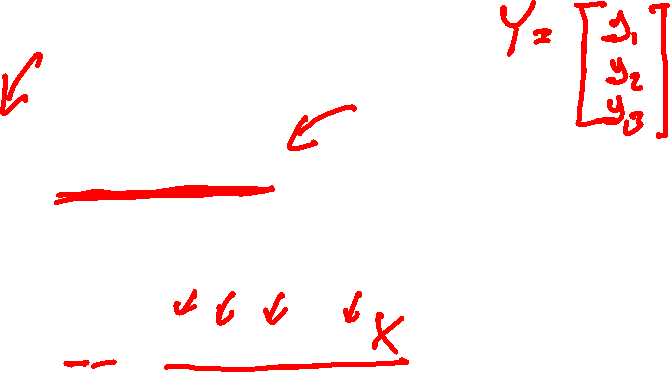 Y = [y1
y2
y3]
X